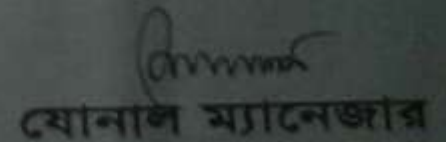 যোনাল ম্যানেজার